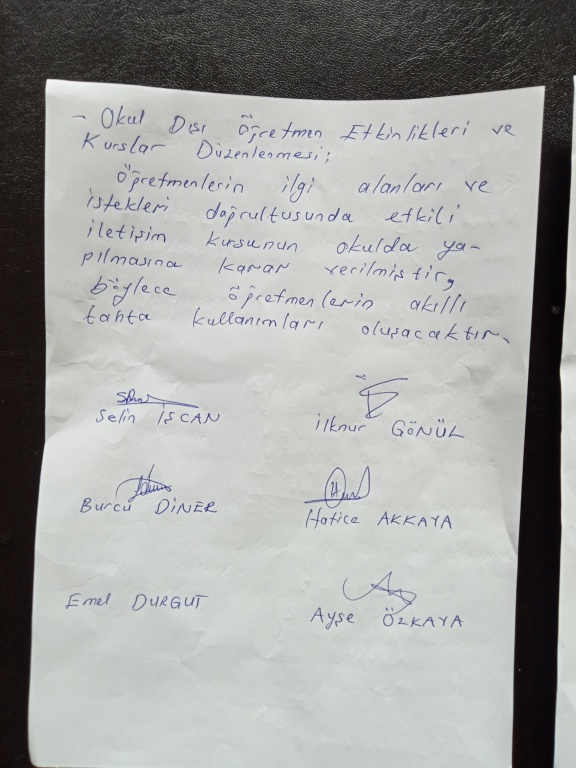 - Okul Dışı Öğretmen Etkinlikleri ve
Kurslar Düzenlenmesi;
Öğretmenlerin ilgi alanları ve
istekleri doğrultusunda etkili
iletişim kursunun okulda ya-
pılmasına karar verilmiştir,
böylece öğretmenlerin akıllı
tahta kullanımları oluşacaktır.
Selin İŞCAN İlknur GÖNÜL
Burcu DİNER Hatice AKKAYA
Emel DURGUT Ayşe ÖZKAYA